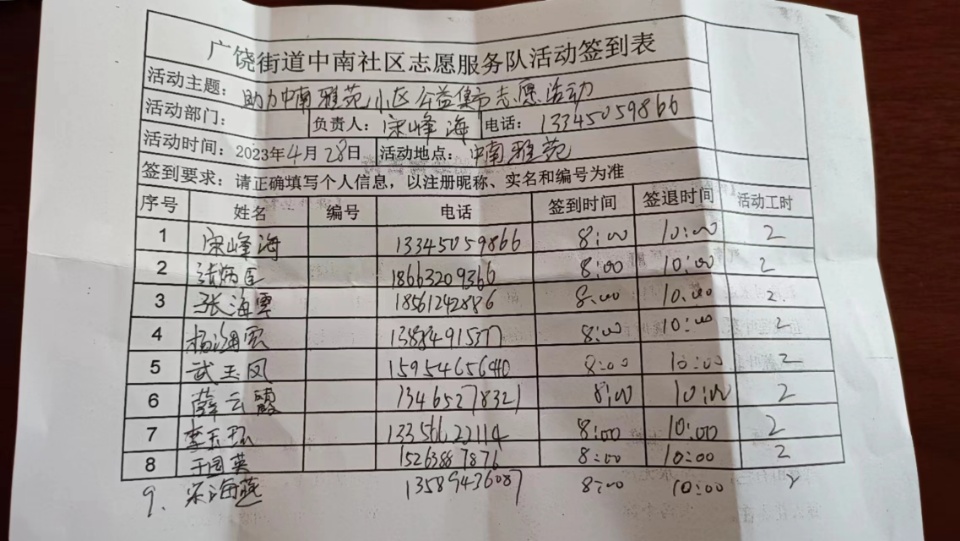 广饶街道中南社区志愿服务队活动签到表
活动主题: 助力中南雅苑小区公益集市志愿活动
活动部门: 负责人: 宋峰海 电话: 13345059866
活动时间: 2023年4月28日 活动地点: 中南雅苑
签到要求: 请正确填写个人信息，以注册昵称、实名和编号为准
序号 姓名 编号 电话 签到时间 签退时间 活动工时
1 宋峰海 13345059866 8:00 10:00 2
2 18663209366 8:00 10:00 2
3 张海云 8:00 10:00 2
4 杨海云 8:00 10:00 2
5 武玉凤 15954656440 8:00 10:00 2
6 薛云霞 13465278321 8:00 10:00 2
7 13356622114 8:00 10:00 2
8 于国英 15263887876 8:00 10:00 2
9. 宋海燕 13589436087 8:00 10:00 2